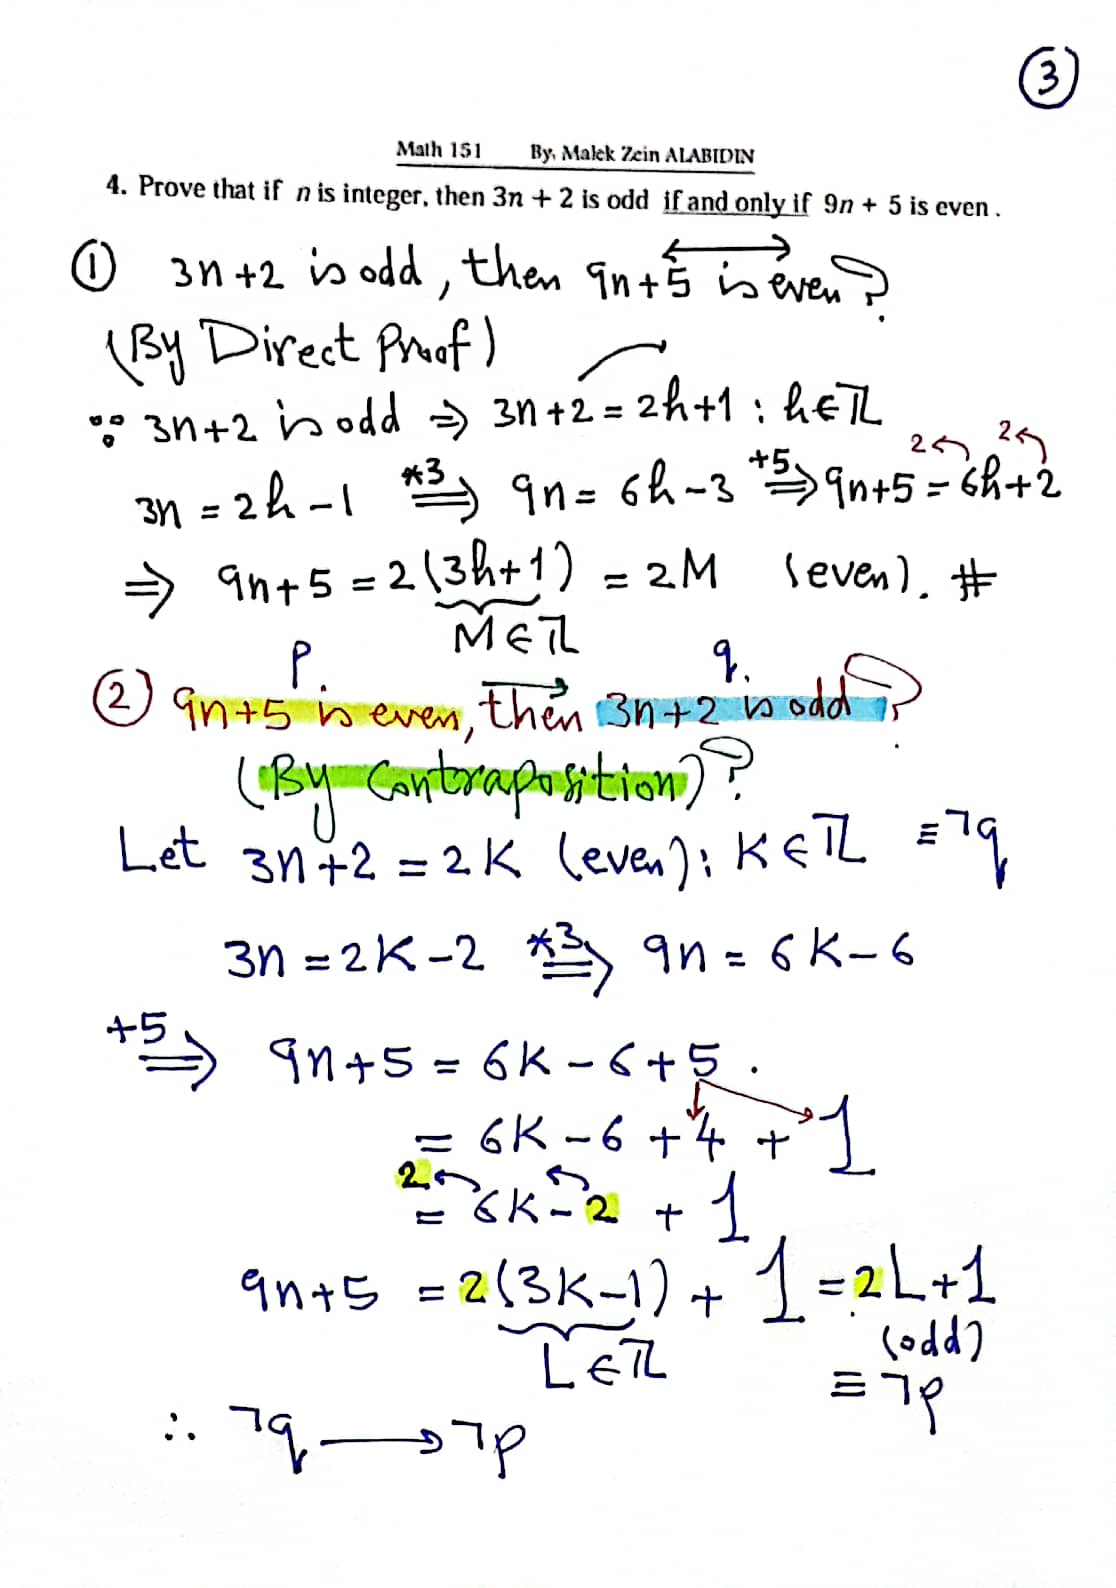 3
Math 151 By. Malek Zein ALABIDIN
4. Prove that if n is integer, then 3n + 2 is odd if and only if 9n + 5 is even.
① 3n+2 is odd, then 9n+5 is even?
(By Direct Proof)
∵ 3n+2 is odd ⇒ 3n+2 = 2h+1 : h∈ℤ
2 2
3n = 2h-1 *3⇒ 9n = 6h-3 +5⇒ 9n+5 = 6h+2
⇒ 9n+5 = 2(3h+1) = 2M (even). #
M∈ℤ
p. q.
② 9n+5 is even, then 3n+2 is odd?
(By Contraposition)?
Let 3n+2 = 2K (even): K∈ℤ ≡¬q
3n = 2K-2 *3⇒ 9n = 6K-6
+5⇒ 9n+5 = 6K-6+5.
= 6K-6+4+1
2
= 6K-2 + 1
9n+5 = 2(3K-1) + 1 = 2L+1
L∈ℤ (odd)
≡ ¬p
∴ ¬q → ¬p